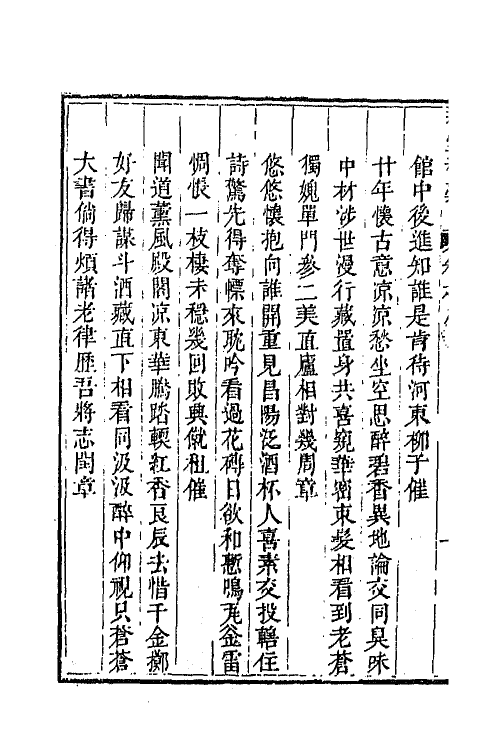 館中後進知誰是肯待河東柳子催
廿年懷古意凉凉愁坐空思醉碧香異地論交同臭味
中材涉世漫行藏置身共喜窺華密束髮相看到老蒼
獨媿單門參二美直廬相對幾周章
悠悠懷抱向誰開重見昌陽泛酒杯人喜素交投轄住
詩驚先得奪幖來耽吟看過花磚日欲和慙鳴瓦釜雷
惆悵一枝棲未穩幾回敗興僦租催
聞道薰風殿閣凉東華騰踏輭紅香良辰去惜千金擲
好友歸謀斗酒藏直下相看同汲汲醉中仰視只蒼蒼
大書倘得煩諸老律歷吾將志閏章